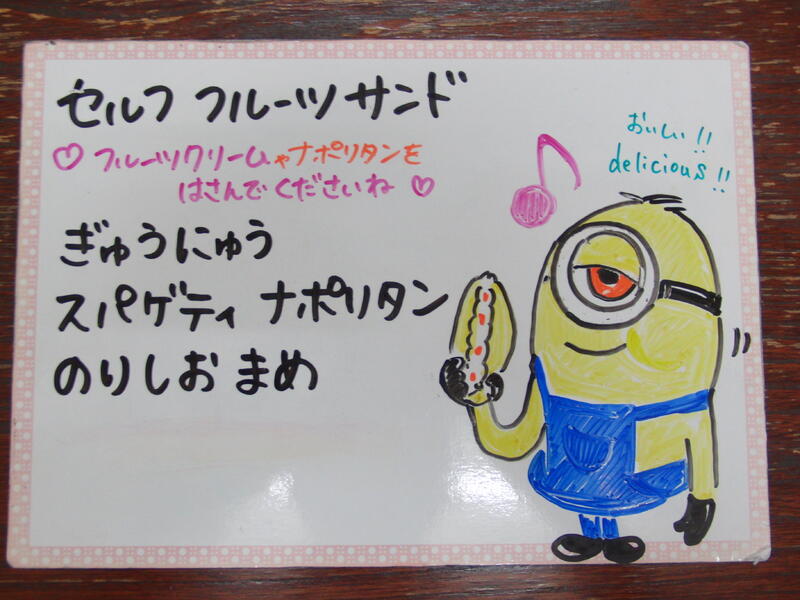 セルフ フルーツサンド
♡ フルーツクリームやナポリタンを
はさんでくださいね ♡
ぎゅうにゅう
スパゲティ ナポリタン
のりしお まめ
おいしい!!
delicious!!